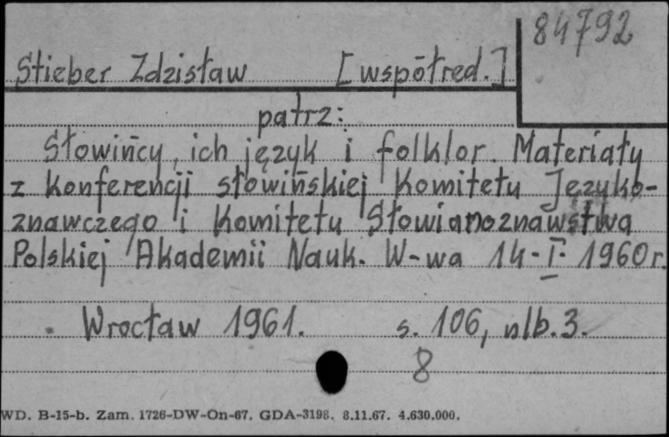 84792
Stieber Zdzisław [współred.]
patrz:
Słowińcy, ich język i folklor. Materiały
z konferencji słowińskiej Komitetu Języko-
znawczego i Komitetu Słowianoznawstwa
Polskiej Akademii Nauk. W-wa 14-I- 1960r.
Wrocław 1961. s. 106, nlb. 3.
8
WD. B-15-b. Zam. 1726-DW-On-67. GDA-3198. 8.11.67. 4.630.000.